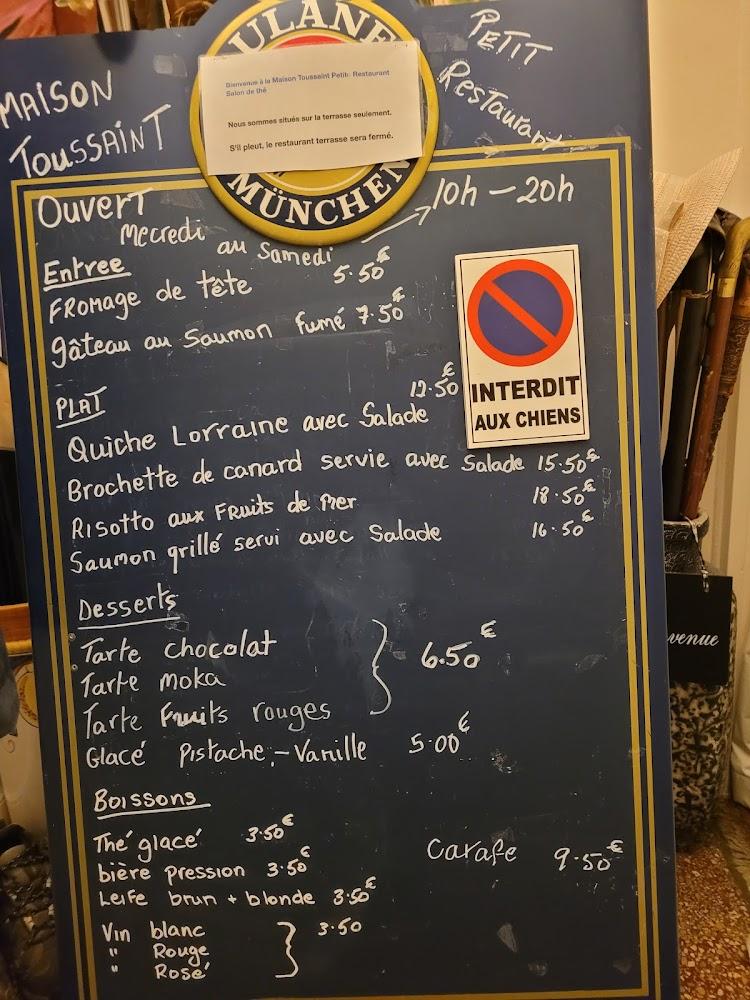 MAISON
TOUSSAINT
PETIT
Restaurant
ULANE
MÜNCHEN
Bienvenue à la Maison Toussaint Petit Restaurant
Salon de thé
Nous sommes situés sur la terrasse seulement.
S'il pleut, le restaurant terrasse sera fermé.
Ouvert
Mecredi au Samedi 10h - 20h
Entree
Fromage de tête 5.50€
gâteau au Saumon fumé 7.50€
INTERDIT
AUX CHIENS
PLAT
Quiche Lorraine avec Salade €
Brochette de canard servie avec Salade 15.50€
Risotto aux Fruits de Mer 18.50€
Saumon grillé servi avec Salade 16.50€
Desserts
Tarte chocolat
Tarte moka 6.50€
Tarte Fruits rouges
Glacé Pistache - Vanille 5.00€
Boissons
Thé glacé 3.50€
bière pression 3.50€
Leffe brun + blonde 3.50€
Carafe 9.50€
Vin blanc 3.50
" Rouge
" Rosé
venue